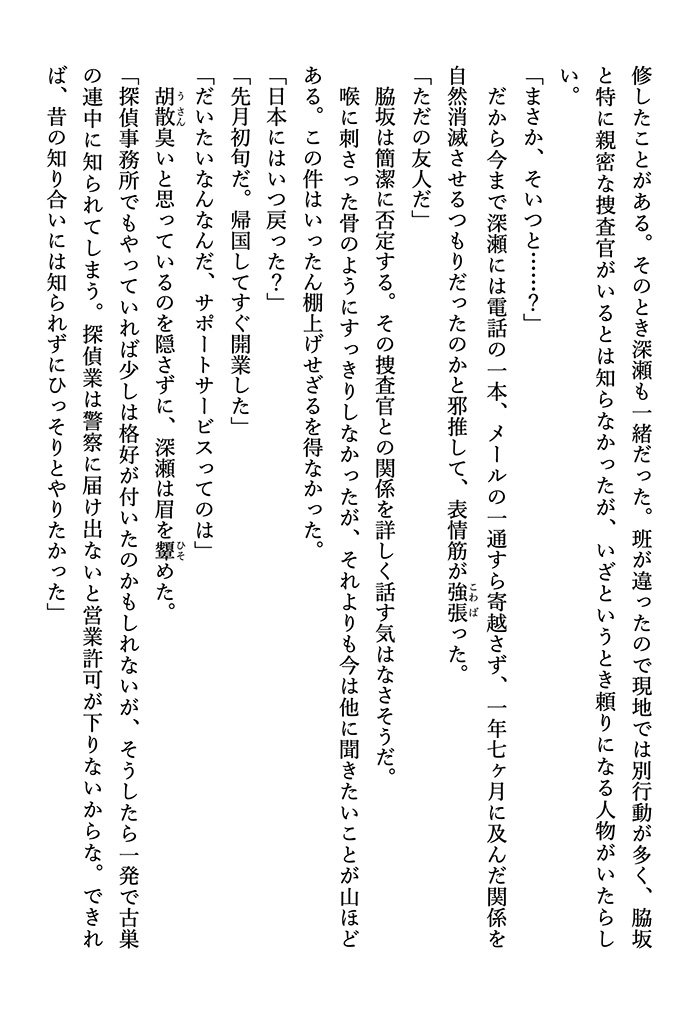 修したことがある。そのとき深瀬も一緒だった。班が違ったので現地では別行動が多く、脇坂
と特に親密な捜査官がいるとは知らなかったが、いざというとき頼りになる人物がいたらし
い。
「まさか、そいつと……?」
だから今まで深瀬には電話の一本、メールの一通すら寄越さず、一年七ヶ月に及んだ関係を
自然消滅させるつもりだったのかと邪推して、表情筋が強張こわばった。
「ただの友人だ」
脇坂は簡潔に否定する。その捜査官との関係を詳しく話す気はなさそうだ。
喉に刺さった骨のようにすっきりしなかったが、それよりも今は他に聞きたいことが山ほど
ある。この件はいったん棚上げせざるを得なかった。
「日本にはいつ戻った?」
「先月初旬だ。帰国してすぐ開業した」
「だいたいなんなんだ、サポートサービスってのは」
胡散うさん臭いと思っているのを隠さずに、深瀬は眉を顰ひそめた。
「探偵事務所でもやっていれば少しは格好が付いたのかもしれないが、そうしたら一発で古巣
の連中に知られてしまう。探偵業は警察に届け出ないと営業許可が下りないからな。できれ
ば、昔の知り合いには知られずにひっそりとやりたかった」